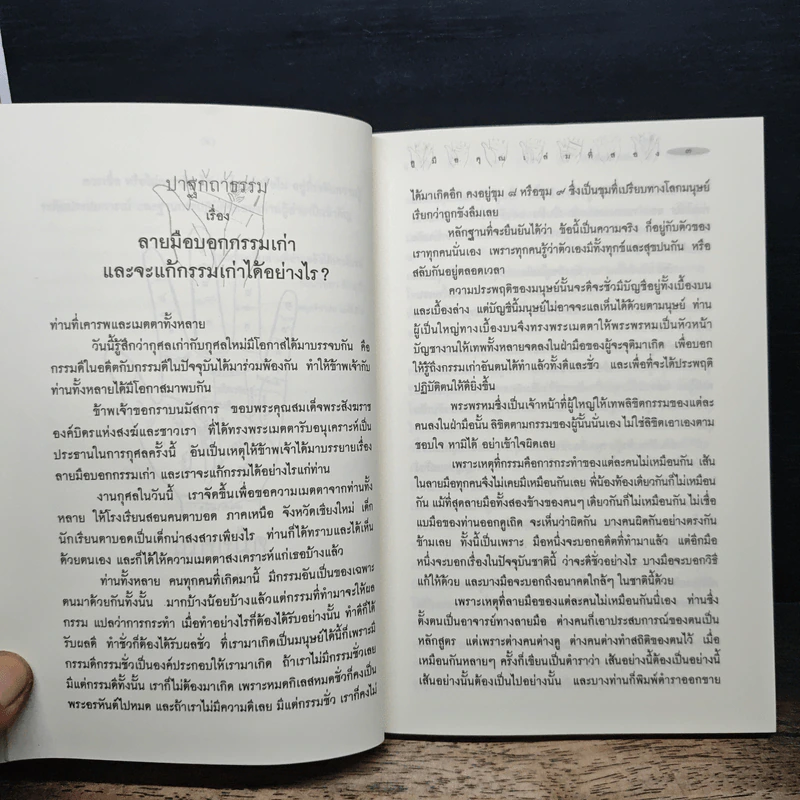 ปาฐกถาธรรม
เรื่อง
ลายมือบอกกรรมเก่า
และจะแก้กรรมเก่าได้อย่างไร ?
ท่านที่เคารพและเมตตาทั้งหลาย
วันนี้รู้สึกว่ากุศลเก่ากับกุศลใหม่มีโอกาสได้มาบรรจบกัน คือ
กรรมดีในอดีตกับกรรมดีในปัจจุบันได้มาร่วมพ้องกัน ทำให้ข้าพเจ้ากับ
ท่านทั้งหลายได้มีโอกาสมาพบกัน
ข้าพเจ้าขอกราบนมัสการ ขอบพระคุณสมเด็จพระสังฆราช
องค์บิดรแห่งสงฆ์และชาวเรา ที่ได้ทรงพระเมตตารับอนุเคราะห์เป็น
ประธานในการกุศลครั้งนี้ อันเป็นเหตุให้ข้าพเจ้าได้มาบรรยายเรื่อง
ลายมือบอกกรรมเก่า และเราจะแก้กรรมได้อย่างไรแก่ท่าน
งานกุศลในวันนี้ เราจัดขึ้นเพื่อขอความเมตตาจากท่านทั้ง
หลาย ให้โรงเรียนสอนคนตาบอด ภาคเหนือ จังหวัดเชียงใหม่ เด็ก
นักเรียนตาบอดเป็นเด็กน่าสงสารเพียงไร ท่านก็ได้ทราบและได้เห็น
ด้วยตนเอง และก็ได้ให้ความเมตตาสงเคราะห์แก่เธอบ้างแล้ว
ท่านทั้งหลาย คนทุกคนที่เกิดมานี้ มีกรรมอันเป็นของเฉพาะ
ตนมาด้วยกันทั้งนั้น มากบ้างน้อยบ้างแล้วแต่กรรมที่ทำมาจะให้ผล
กรรม แปลว่าการกระทำ เมื่อทำอย่างไรก็ต้องได้รับอย่างนั้น ทำดีก็ได้
รับผลดี ทำชั่วก็ต้องได้รับผลชั่ว ที่เรามาเกิดเป็นมนุษย์ได้นี้ก็เพราะมี
กรรมดีกรรมชั่วเป็นองค์ประกอบให้เรามาเกิด ถ้าเราไม่มีกรรมชั่วเลย
มีแต่กรรมดีทั้งนั้น เราก็ไม่ต้องมาเกิด เพราะหมดกิเลสหมดชั่วก็คงเป็น
พระอรหันต์ไปหมด และถ้าเราไม่มีความดีเลย มีแต่กรรมชั่ว เราก็คงไม่
คู่มือคุณเล่มที่สอง ๓
ได้มาเกิดอีก คงอยู่ขุม ๘ หรือขุม ๙ ซึ่งเป็นขุมที่เปรียบทางโลกมนุษย์
เรียกว่าถูกขังลืมเลย
หลักฐานที่จะยืนยันได้ว่า ข้อนี้เป็นความจริง ก็อยู่กับตัวของ
เราทุกคนนั่นเอง เพราะทุกคนรู้ว่าตัวเองมีทั้งทุกข์และสุขปนกัน หรือ
สลับกันอยู่ตลอดเวลา
ความประพฤติของมนุษย์นั้นจะดีจะชั่วมีบัญชีอยู่ทั้งเบื้องบน
และเบื้องล่าง แต่บัญชีนี้มนุษย์ไม่อาจจะแลเห็นได้ด้วยตามนุษย์ ท่าน
ผู้เป็นใหญ่ทางเบื้องบนจึงทรงพระเมตตาให้พระพรหมเป็นหัวหน้า
บัญชางานให้เทพทั้งหลายจดลงในฝ่ามือของผู้จะจุติมาเกิด เพื่อบอก
ให้รู้ถึงกรรมเก่าอันตนได้ทำแล้วทั้งดีและชั่ว และเพื่อที่จะได้ประพฤติ
ปฏิบัติตนให้ดียิ่งขึ้น
พระพรหมซึ่งเป็นเจ้าหน้าที่ผู้ใหญ่ให้เทพลิขิตกรรมของแต่ละ
คนลงในฝ่ามือนั้น ลิขิตตามกรรมของผู้นั้นนั่นเองไม่ใช่ลิขิตเอาเองตาม
ชอบใจ หามิได้ อย่าเข้าใจผิดเลย
เพราะเหตุที่กรรมคือการกระทำของแต่ละคนไม่เหมือนกัน เส้น
ในลายมือทุกคนจึงไม่เคยมีเหมือนกันเลย พี่น้องท้องเดียวกันก็ไม่เหมือน
กัน แม้ที่สุดลายมือทั้งสองข้างของคนๆ เดียวกันก็ไม่เหมือนกัน ไม่เชื่อ
แบมือของท่านออกดูเถิด จะเห็นว่าผิดกัน บางคนผิดกันอย่างตรงกัน
ข้ามเลย ทั้งนี้เป็นเพราะ มือหนึ่งจะบอกอดีตที่ทำมาแล้ว แต่อีกมือ
หนึ่งจะบอกเรื่องในปัจจุบันชาตินี้ ว่าจะดีชั่วอย่างไร บางมือจะบอกวิธี
แก้ให้ด้วย และบางมือจะบอกถึงอนาคตใกล้ๆ ในชาตินี้ด้วย
เพราะเหตุที่ลายมือของแต่ละคนไม่เหมือนกันนี่เอง ท่านซึ่ง
ตั้งตนเป็นอาจารย์ทางลายมือ ต่างคนก็เอาประสบการณ์ของตนเป็น
หลักสูตร แต่เพราะต่างคนต่างดู ต่างคนต่างทำสถิติของตนไว้ เมื่อ
เหมือนกันหลายๆ ครั้งก็เขียนเป็นตำราว่า เส้นอย่างนี้ต้องเป็นอย่างนี้
เส้นอย่างนั้นต้องเป็นไปอย่างนั้น และบางท่านก็พิมพ์ตำราออกขาย